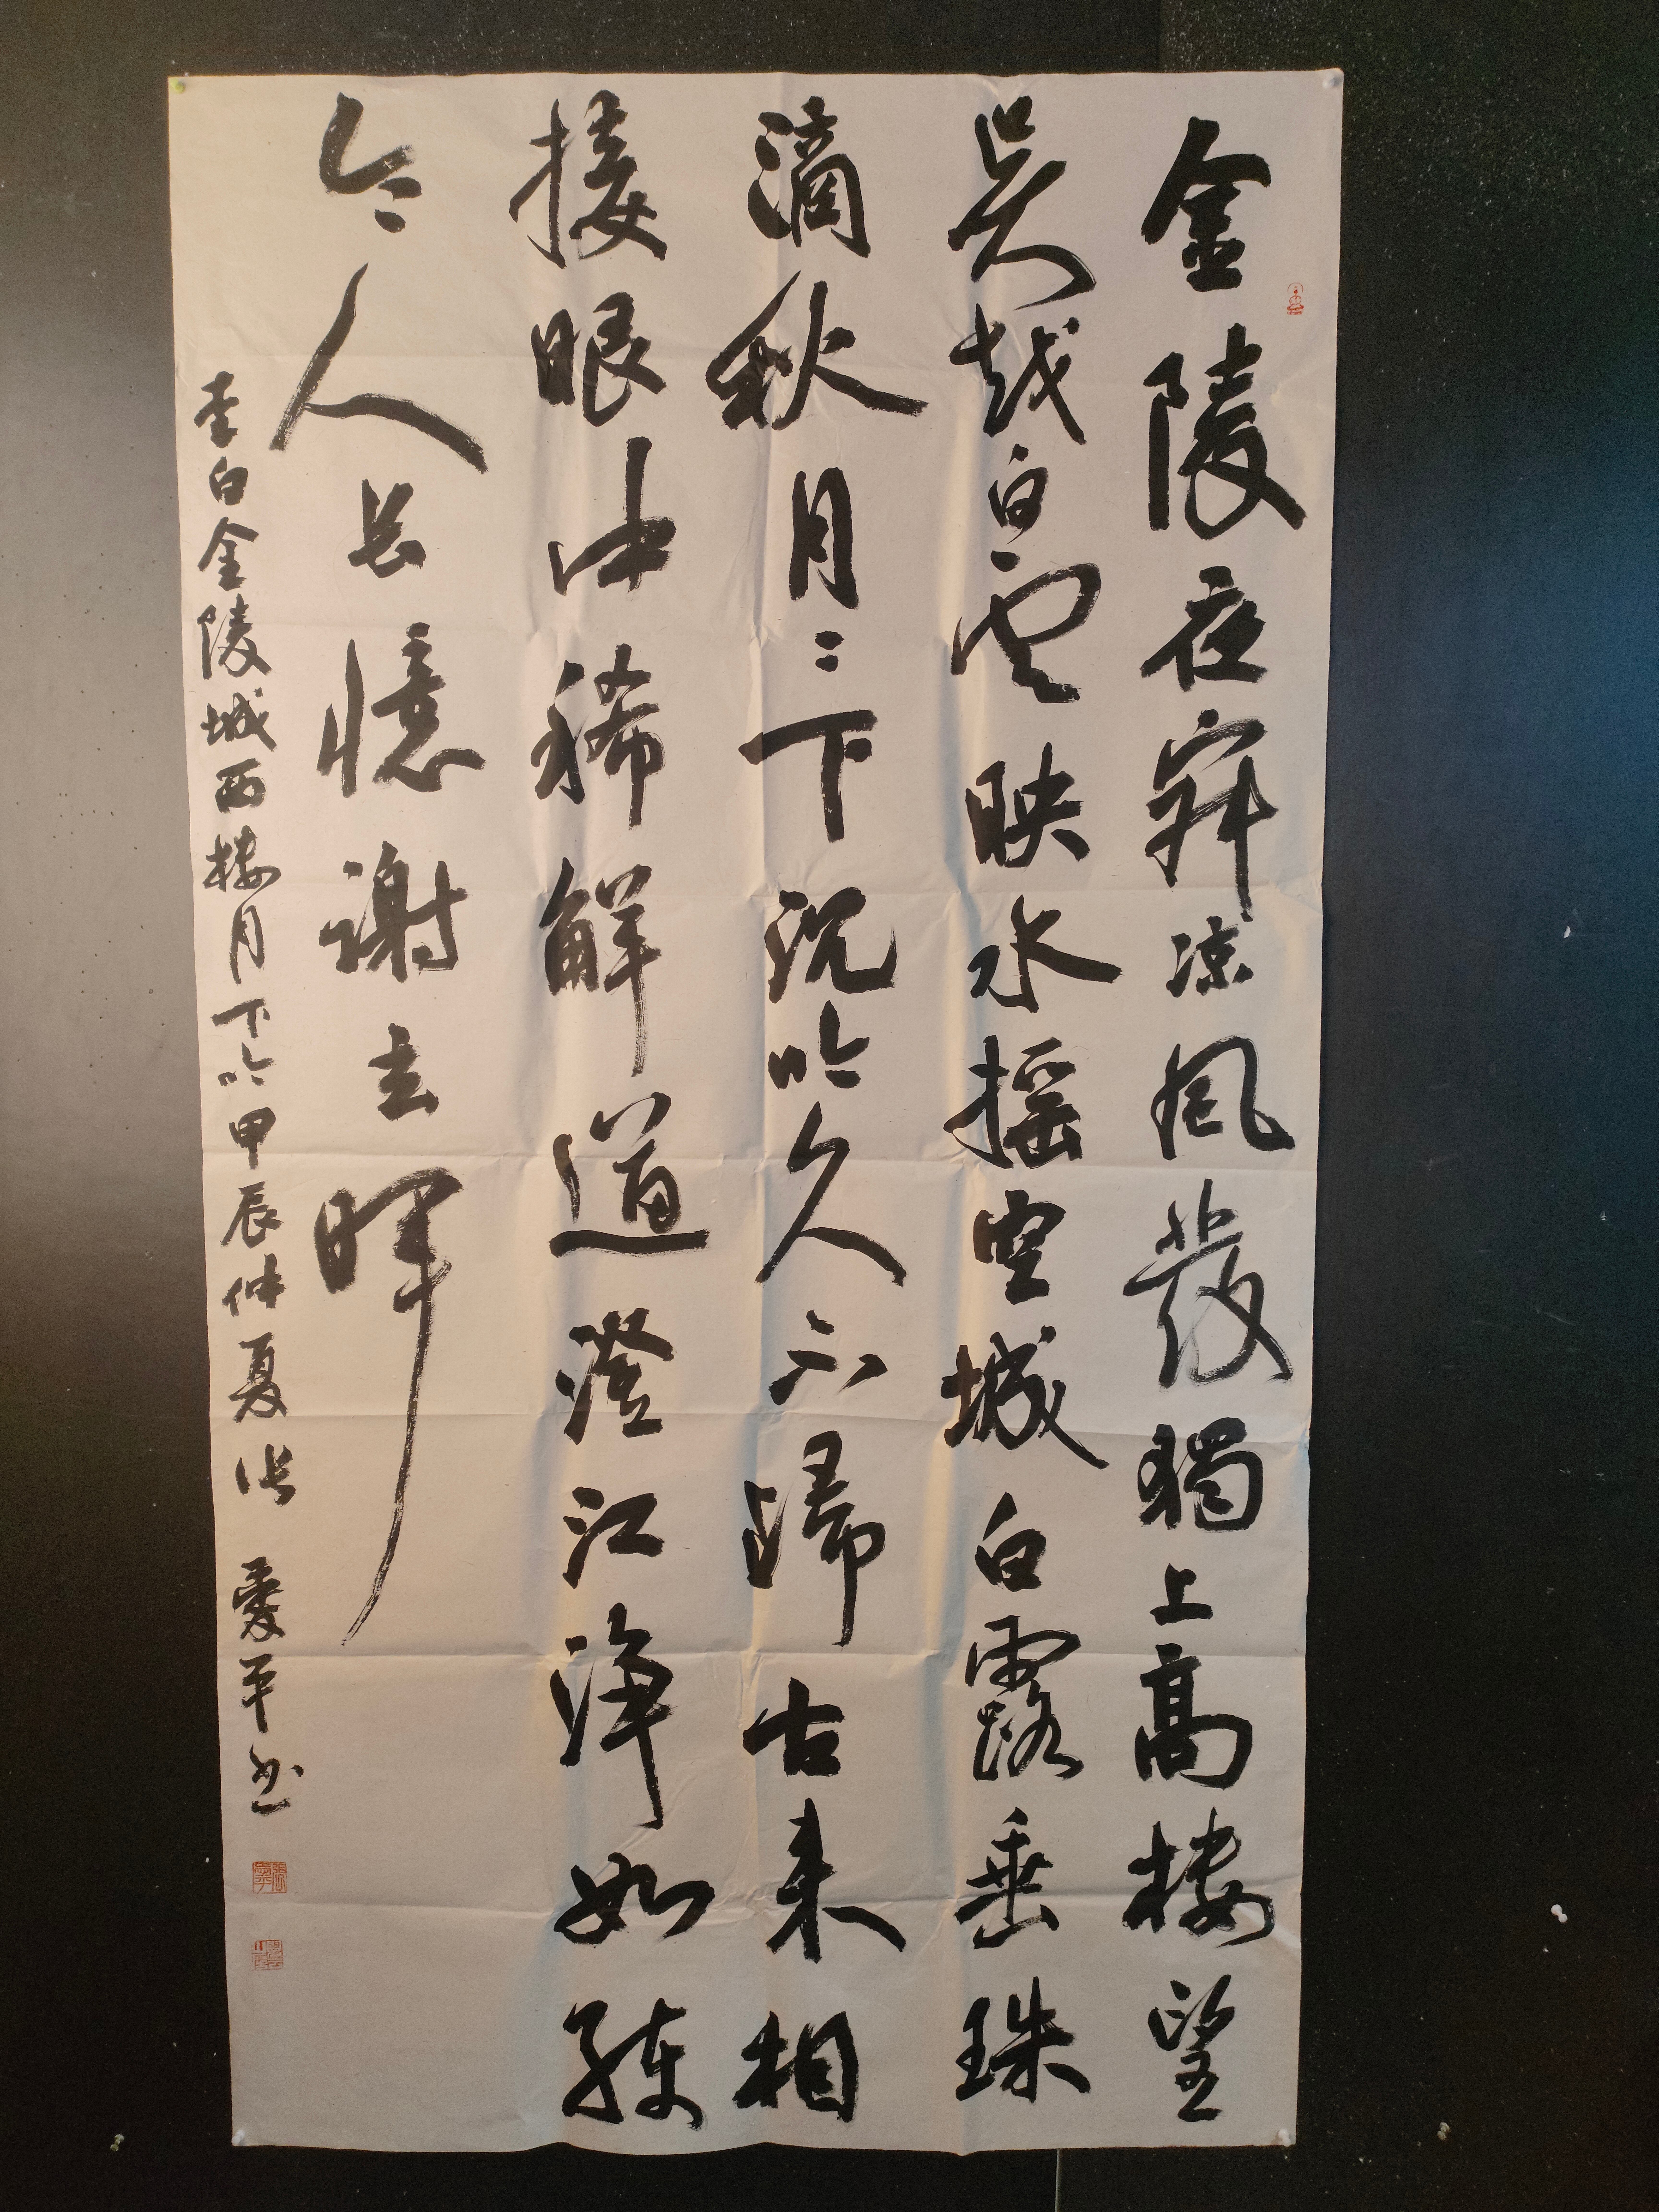 金陵夜寂凉風發獨上高楼望
吳越白雲映水摇空城白露垂珠
滴秋月月下沉吟久不歸古来相
接眼中稀解道澄江淨如練
令人長憶謝玄暉
李白金陵城西楼月下吟甲辰仲夏张爱平书